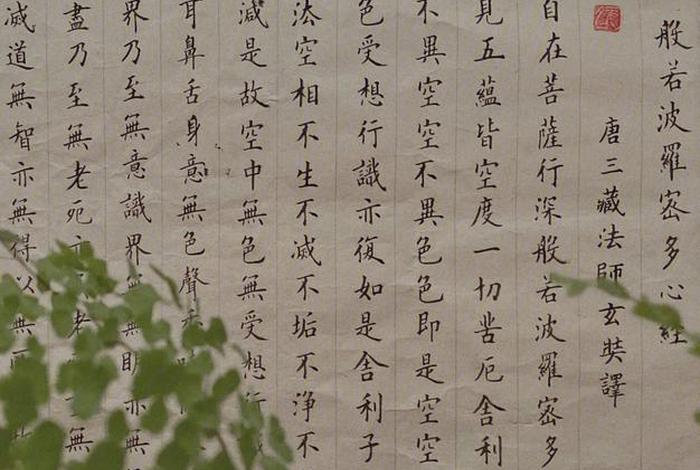 般若波羅密多心經
唐三藏法師玄奘譯
自在菩薩行深般若波羅密多
見五蘊皆空度一切苦厄舍利
不異空空不異色色即是空空
色受想行識亦復如是舍利子
法空相不生不滅不垢不淨不
減是故空中無色無受想行
耳鼻舌身意無色聲
界乃至無意識界無無明亦無
盡乃至無老死亦老無
滅道無智亦無得以無